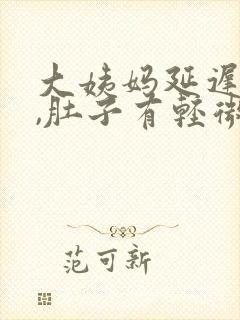 大姨妈延遲
,肚子有輕微
范可新